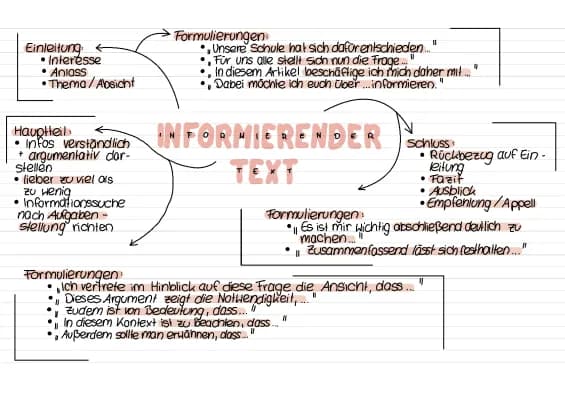 Einleitung:
• Interesse
• Anlass
• Thema / Absicht
Formulierungen:
• „Unsere Schule hat sich dafür entschieden..."
• „Für uns alle stellt sich nun die Frage..."
• „In diesem Artikel beschäftige ich mich daher mit..."
• „Dabei möchte ich euch über ...informieren."
INFORMIERENDER
TEXT
Hauptteil:
• Infos verständlich
+ argumentativ dar-
stellen
• lieber zu viel als
zu wenig
• Informationssuche
nach Aufgaben-
stellung richten
Schluss:
• Rückbezug auf Ein-
leitung
• Fazit
• Ausblick
• Empfehlung / Appell
Formulierungen:
• „Es ist mir wichtig abschließend deutlich zu
machen..."
• „Zusammenfassend lässt sich festhalten..."
Formulierungen:
• „Ich vertrete im Hinblick auf diese Frage die Ansicht, dass..."
• „Dieses Argument zeigt die Notwendigkeit,..."
• „Zudem ist von Bedeutung, dass..."
• „In diesem Kontext ist zu beachten, dass..."
• „Außerdem sollte man erwähnen, dass..."